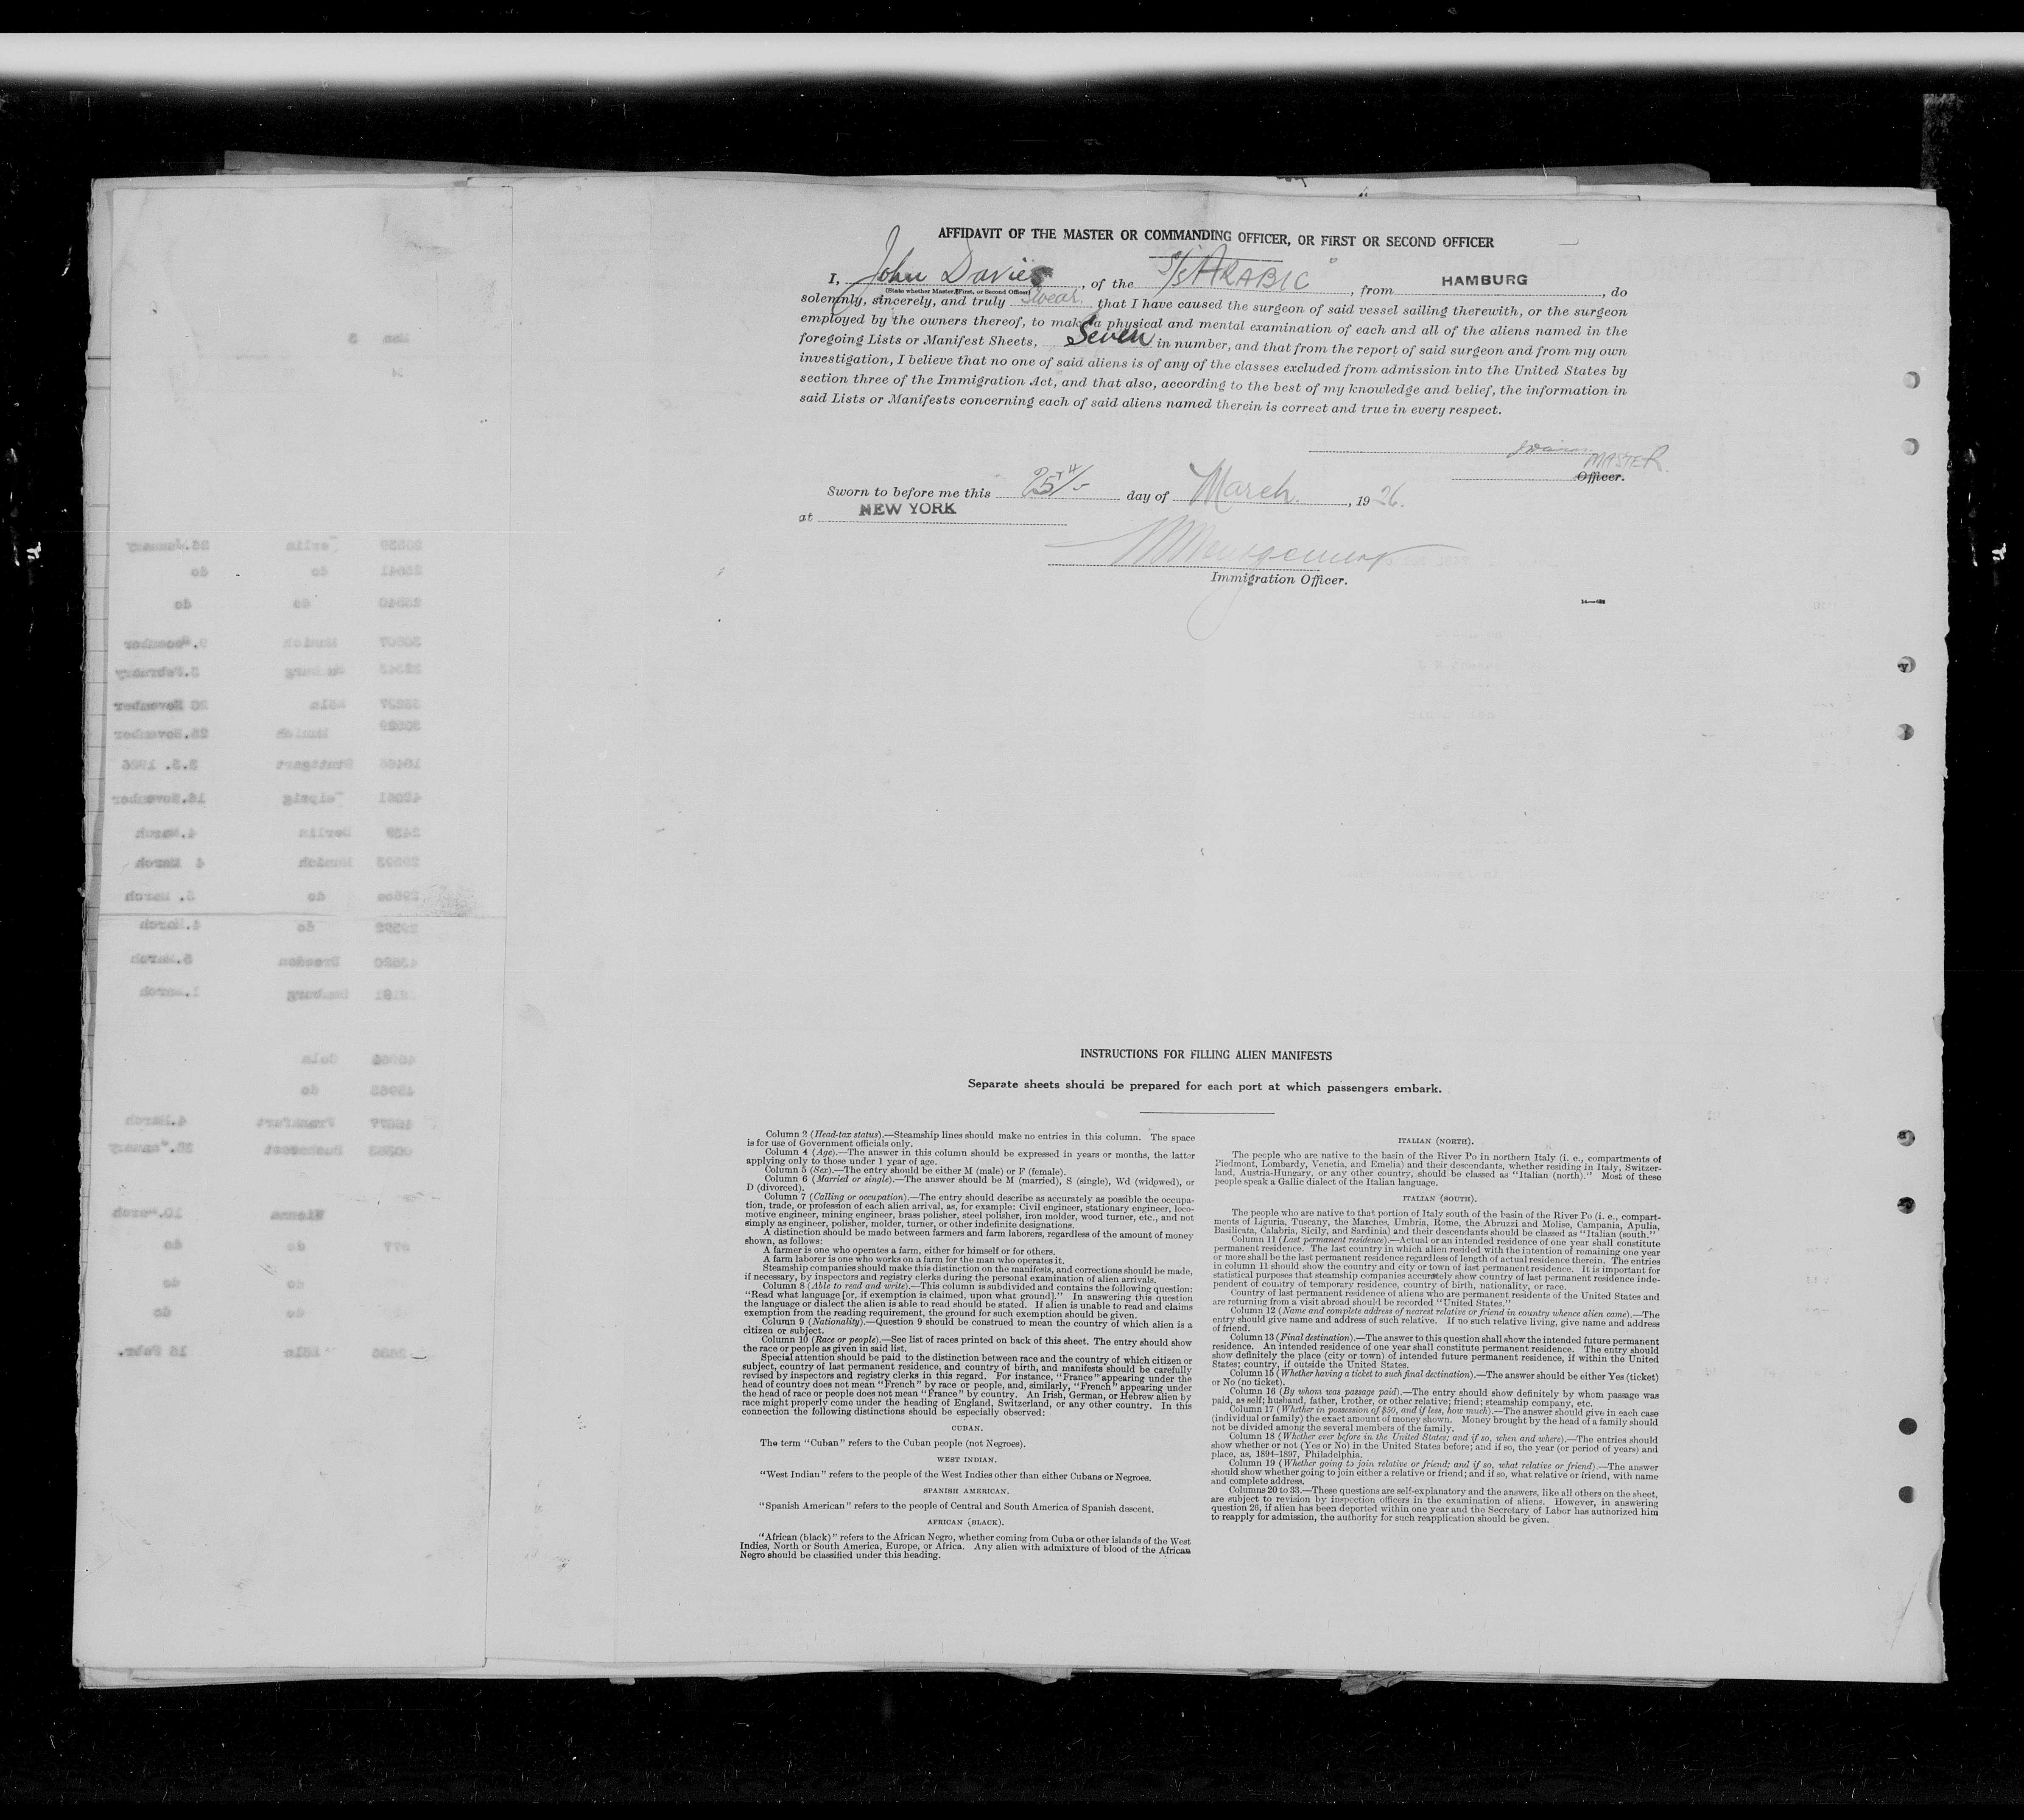 AFFIDAVIT OF THE MASTER OR COMMANDING OFFICER, OR FIRST OR SECOND OFFICER
I, John Davies, of the S/S "ARABIC", from HAMBURG, do
(State whether Master, First, or Second Officer)
solemnly, sincerely, and truly swear that I have caused the surgeon of said vessel sailing therewith, or the surgeon
employed by the owners thereof, to make a physical and mental examination of each and all of the aliens named in the
foregoing Lists or Manifest Sheets, Seven in number, and that from the report of said surgeon and from my own
investigation, I believe that no one of said aliens is of any of the classes excluded from admission into the United States by
section three of the Immigration Act, and that also, according to the best of my knowledge and belief, the information in
said Lists or Manifests concerning each of said aliens named therein is correct and true in every respect.
MASTER
Officer.
Sworn to before me this 25th day of March, 1926.
at NEW YORK
Immigration Officer.
INSTRUCTIONS FOR FILLING ALIEN MANIFESTS
Separate sheets should be prepared for each port at which passengers embark.
Column 2 (Head-tax status).—Steamship lines should make no entries in this column. The space
is for use of Government officials only.
Column 4 (Age).—The answer in this column should be expressed in years or months, the latter
applying only to those under 1 year of age.
Column 5 (Sex).—The entry should be either M (male) or F (female).
Column 6 (Married or single).—The answer should be M (married), S (single), Wd (widowed), or
D (divorced).
Column 7 (Calling or occupation).—The entry should describe as accurately as possible the occupa-
tion, trade, or profession of each alien arrival, as, for example: Civil engineer, stationary engineer, loco-
motive engineer, mining engineer, brass polisher, steel polisher, iron molder, wood turner, etc., and not
simply as engineer, polisher, molder, turner, or other indefinite designations.
A distinction should be made between farmers and farm laborers, regardless of the amount of money
shown, as follows:
A farmer is one who operates a farm, either for himself or for others.
A farm laborer is one who works on a farm for the man who operates it.
Steamship companies should make this distinction on the manifests, and corrections should be made,
if necessary, by inspectors and registry clerks during the personal examination of alien arrivals.
Column 8 (Able to read and write).—This column is subdivided and contains the following question:
"Read what language [or, if exemption is claimed, upon what ground]." In answering this question
the language or dialect the alien is able to read should be stated. If alien is unable to read and claims
exemption from the reading requirement, the ground for such exemption should be given.
Column 9 (Nationality).—Question 9 should be construed to mean the country of which alien is a
citizen or subject.
Column 10 (Race or people).—See list of races printed on back of this sheet. The entry should show
the race or people as given in said list.
Special attention should be paid to the distinction between race and the country of which citizen or
subject, country of last permanent residence, and country of birth, and manifests should be carefully
revised by inspectors and registry clerks in this regard. For instance, "France" appearing under the
head of country does not mean "French" by race or people, and, similarly, "French" appearing under
the head of race or people does not mean "France" by country. An Irish, German, or Hebrew alien by
race might properly come under the heading of England, Switzerland, or any other country. In this
connection the following distinctions should be especially observed:
CUBAN.
The term "Cuban" refers to the Cuban people (not Negroes).
WEST INDIAN.
"West Indian" refers to the people of the West Indies other than either Cubans or Negroes.
SPANISH AMERICAN.
"Spanish American" refers to the people of Central and South America of Spanish descent.
AFRICAN (BLACK).
"African (black)" refers to the African Negro, whether coming from Cuba or other islands of the West
Indies, North or South America, Europe, or Africa. Any alien with admixture of blood of the African
Negro should be classified under this heading.
ITALIAN (NORTH).
The people who are native to the basin of the River Po in northern Italy (i. e., compartments of
Piedmont, Lombardy, Venetia, and Emelia) and their descendants, whether residing in Italy, Switzer-
land, Austria-Hungary, or any other country, should be classed as "Italian (north)." Most of these
people speak a Gallic dialect of the Italian language.
ITALIAN (SOUTH).
The people who are native to that portion of Italy south of the basin of the River Po (i. e., compart-
ments of Liguria, Tuscany, the Marches, Umbria, Rome, the Abruzzi and Molise, Campania, Apulia,
Basilicata, Calabria, Sicily, and Sardinia) and their descendants should be classed as "Italian (south."
Column 11 (Last permanent residence).—Actual or an intended residence of one year shall constitute
permanent residence. The last country in which alien resided with the intention of remaining one year
or more shall be the last permanent residence regardless of length of actual residence therein. The entries
in column 11 should show the country and city or town of last permanent residence. It is important for
statistical purposes that steamship companies accurately show country of last permanent residence inde-
pendent of country of temporary residence, country of birth, nationality, or race.
Country of last permanent residence of aliens who are permanent residents of the United States and
are returning from a visit abroad should be recorded "United States."
Column 12 (Name and complete address of nearest relative or friend in country whence alien came).—The
entry should give name and address of such relative. If no such relative living, give name and address
of friend.
Column 13 (Final destination).—The answer to this question shall show the intended future permanent
residence. An intended residence of one year shall constitute permanent residence. The entry should
show definitely the place (city or town) of intended future permanent residence, if within the United
States; country, if outside the United States.
Column 15 (Whether having a ticket to such final destination).—The answer should be either Yes (ticket)
or No (no ticket).
Column 16 (By whom was passage paid).—The entry should show definitely by whom passage was
paid, as self; husband, father, brother, or other relative; friend; steamship company, etc.
Column 17 (Whether in possession of $50, and if less, how much).—The answer should give in each case
(individual or family) the exact amount of money shown. Money brought by the head of a family should
not be divided among the several members of the family.
Column 18 (Whether ever before in the United States; and if so, when and where).—The entries should
show whether or not (Yes or No) in the United States before; and if so, the year (or period of years) and
place, as, 1894-1897, Philadelphia.
Column 19 (Whether going to join relative or friend; and if so, what relative or friend).—The answer
should show whether going to join either a relative or friend; and if so, what relative or friend, with name
and complete address.
Columns 20 to 33.—These questions are self-explanatory and the answers, like all others on the sheet,
are subject to revision by inspection officers in the examination of aliens. However, in answering
question 26, if alien has been deported within one year and the Secretary of Labor has authorized him
to reapply for admission, the authority for such reapplication should be given.